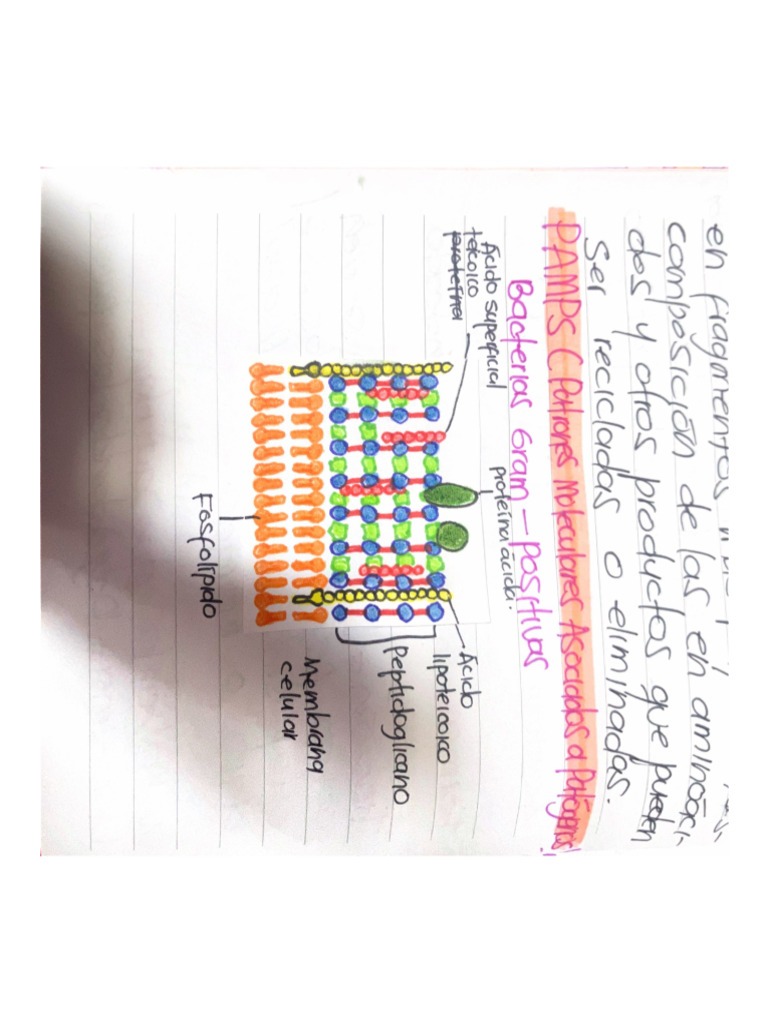 en fragmentos
composición de las en aminoáci-
dos y otros productos que pueden
Ser recicladas o eliminadas.
PAMPS (Patrones Moleculares Asociados a Patógenos)
Bacterias Gram-positivas
Ácido superficial
teicoico
proteína
proteína ácida.
Ácido
lipoteicoico
Peptidoglicano
Membrana
celular
Fosfolípido